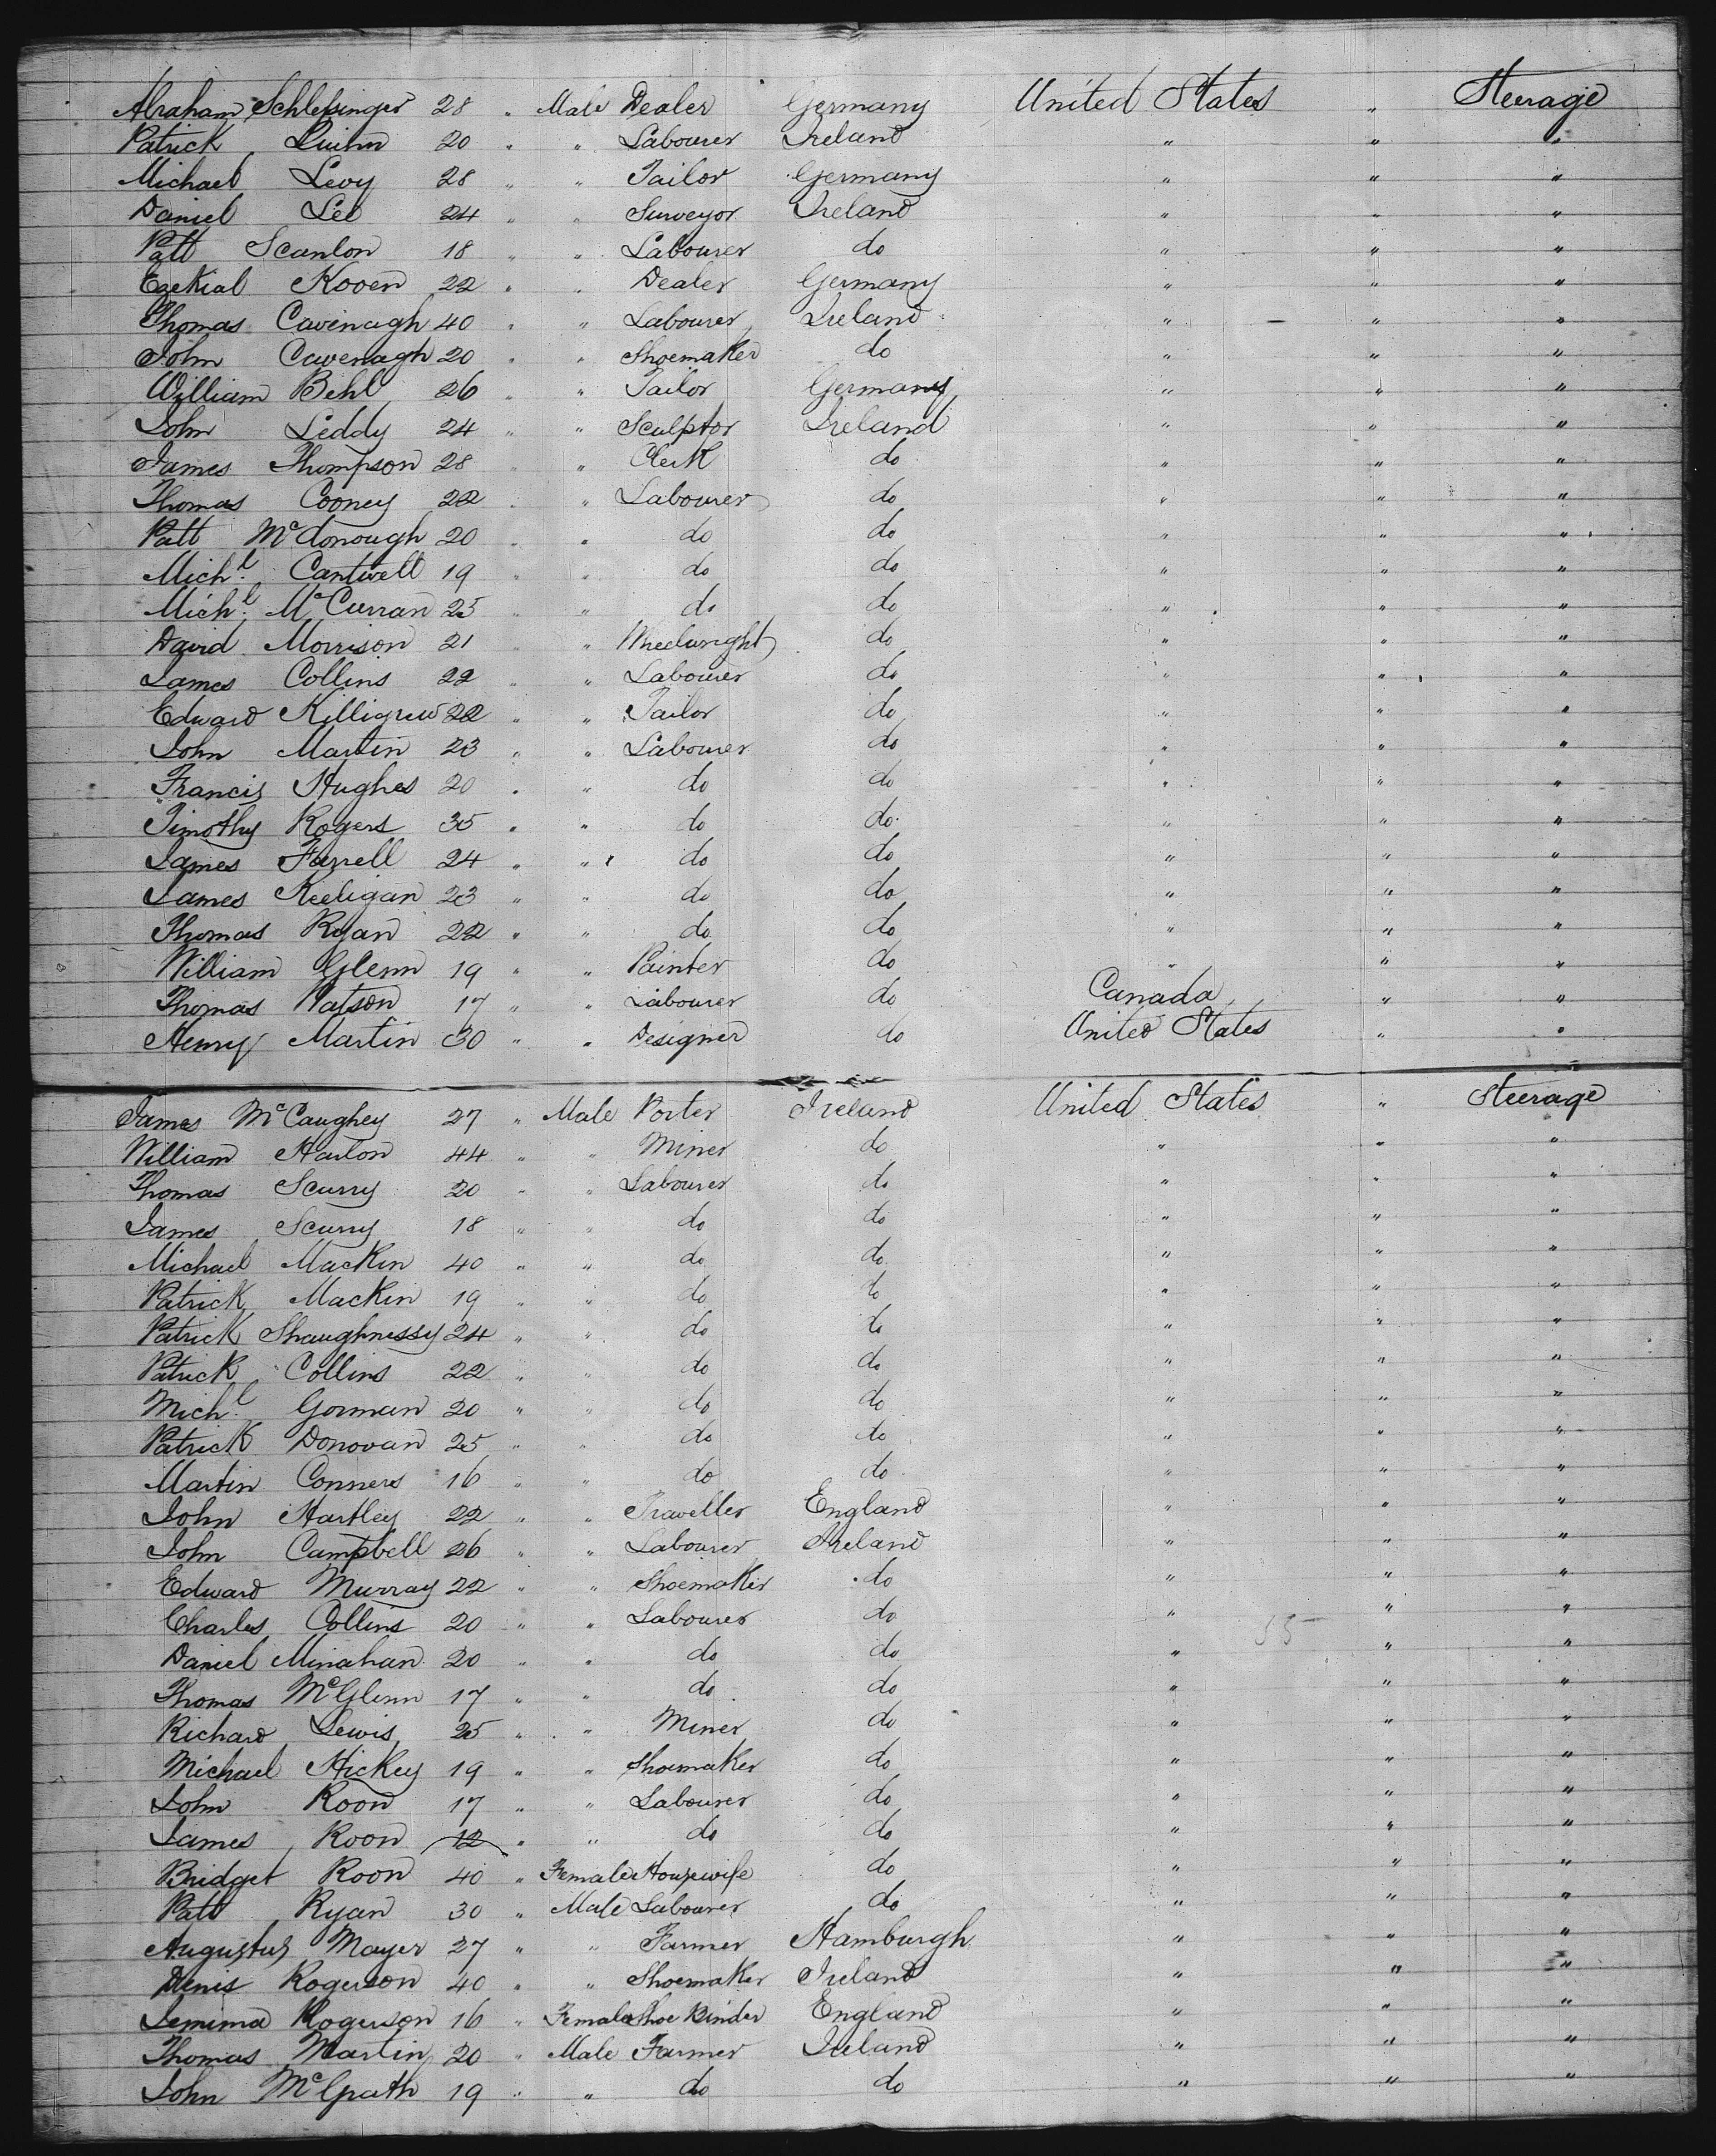 Abraham Schlessinger 28 " Male Dealer Germany United States " Steerage
Patrick Quinn 20 " " Labourer Ireland " " "
Michael Levy 28 " " Tailor Germany " " "
Daniel Lee 24 " " Surveyor Ireland " " "
Patt Scanlon 18 " " Labourer do " " "
Ezekial Kooen 22 " " Dealer Germany " " "
Thomas Cavenagh 40 " " Labourer Ireland " " "
John Cavenagh 20 " " Shoemaker do " " "
William Behl 26 " " Tailor Germany " " "
John Leddy 24 " " Sculptor Ireland " " "
James Thompson 28 " " Clerk do " " "
Thomas Cooney 22 " " Labourer do " " "
Patt McDonough 20 " " do do " " "
Michl. Cantwell 19 " " do do " " "
Michl. McCurran 25 " " do do " " "
David Morrison 21 " " Wheelwright do " " "
James Collins 22 " " Labourer do " " "
Edward Killigrew 22 " " Tailor do " " "
John Martin 23 " " Labourer do " " "
Francis Hughes 20 " " do do " " "
Timothy Rogers 35 " " do do " " "
James Farrell 24 " " do do " " "
James Keeligan 23 " " do do " " "
Thomas Ryan 22 " " do do " " "
William Glenn 19 " " Painter do " " "
Thomas Watson 17 " " Labourer do Canada " "
Henry Martin 30 " " Designer do United States " "
James McCaughey 27 " Male Porter Ireland United States " Steerage
William Harlon 44 " " Miner do " " "
Thomas Scurry 20 " " Labourer do " " "
James Scurry 18 " " do do " " "
Michael Mackin 40 " " do do " " "
Patrick Mackin 19 " " do do " " "
Patrick Shaughnessy 24 " " do do " " "
Patrick Collins 22 " " do do " " "
Michl. Gorman 20 " " do do " " "
Patrick Donovan 25 " " do do " " "
Martin Conners 16 " " do do " " "
John Hartley 22 " " Traveller England " " "
John Campbell 26 " " Labourer Ireland " " "
Edward Murray 22 " " Shoemaker do " " "
Charles Collins 20 " " Labourer do " 55 " "
Daniel Minahan 20 " " do do " " "
Thomas McGlenn 17 " " do do " " "
Richard Lewis 25 " " Miner do " " "
Michael Hickey 19 " " Shoemaker do " " "
John Koon 17 " " Labourer do " " "
James Koon 12 " " do do " " "
Bridget Koon 40 " Female Housewife do " " "
Patt Ryan 30 " Male Labourer do " " "
Augustus Mayer 27 " " Farmer Hamburgh " " "
Denis Rogerson 40 " " Shoemaker Ireland " " "
Jemima Rogerson 16 " Female Shoe Binder England " " "
Thomas Martin 20 " Male Farmer Ireland " " "
John McGrath 19 " " do do " " "